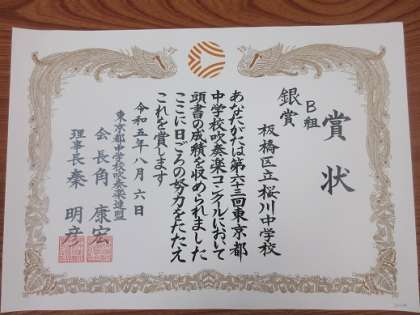 賞状
B組
銀賞
板橋区立桜川中学校
あなたがたは第六十三回東京都
中学校吹奏楽コンクールにおいて
頭書の成績を収められました
ここに日ごろの努力をたたえ
これを賞します
令和五年八月六日
東京都中学校吹奏楽連盟
会長 角 康宏
理事長 秦 明彦